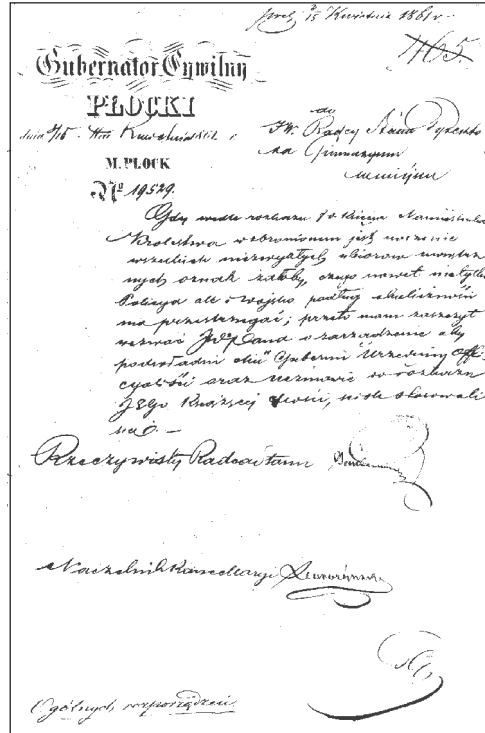 3/15 Kwietnia 1861 r.
465.
Gubernator Cywilny
PŁOCKI
dnia 3/15
M. PŁOCK
Nº 19529.
do
JW. Radcy Stanu
Gimnazyum
Gdy wedle rozkazu JO Księcia Namiestnika
Królestwa wzbronionem jest noszenie
wszelkich niezwykłych ubiorów
nych oznak żałoby, czego nawet nie tylko
Policya ale i wojsko podług okoliczności
ma przestrzegać; przeto mam zaszczyt
wezwać JWPana o zarządzenie aby
podwładni Mu Gubernii Urzędnicy Offi-
cyaliści oraz uczniowie do rozkazu
JEgo Książęcej Mości, ściśle stosowali
się. —
Rzeczywisty Radca Stanu
Naczelnik Kancellaryi
Ogólnych rozporządzeń.